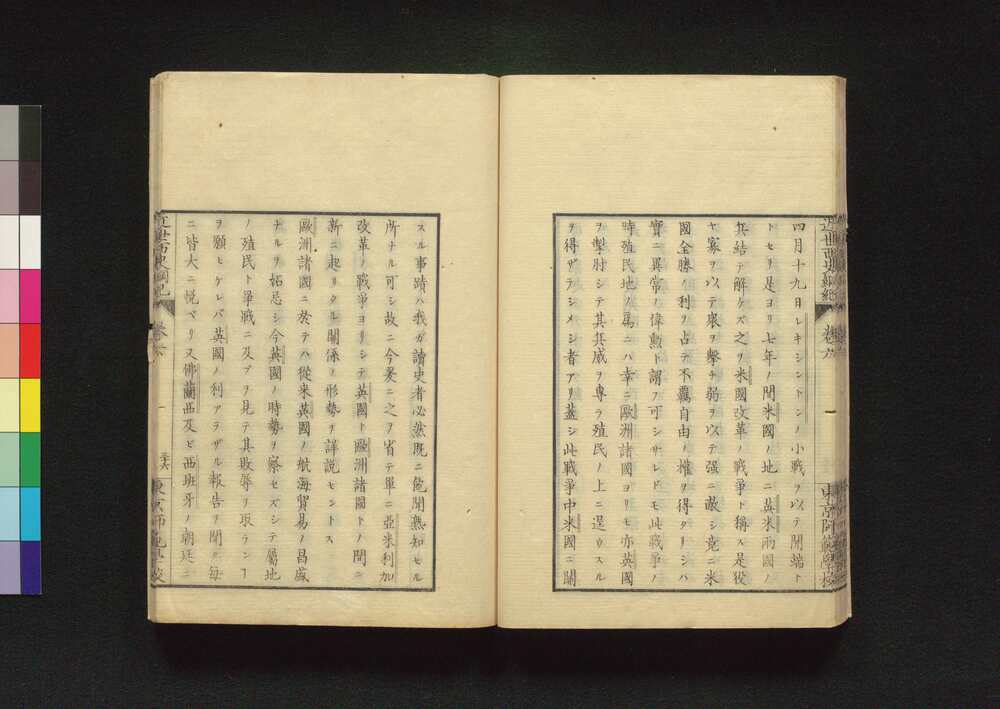 四月十九日レキシントンノ小戰ヲ以テ開端ト
トセリ是ヨリ七年ノ間米國ノ地ニ英米兩國ノ
兵結テ解ケズ之ヲ米國改革ノ戰爭ト稱ス是役
ヤ寡ヲ以テ衆ヲ擊チ弱ヲ以テ强ニ敵シ竟ニ米
國全勝ノ利ヲ占テ不羈自由ノ權ヲ得ターシハ
實ニ異常ノ偉勲ト謂フ可シサレドモ此戰爭ノ
時殖民地ノ爲ニハ幸ニ歐洲諸國ヨリモ亦英國
ヲ掣肘シテ其兵威ヲ專ラ殖民ノ上ニ逞ウスル
ヲ得ザラシメシ者アリ蓋シ此戰爭中米國ニ關
スル事蹟ハ我ガ讀史者必然既ニ飽聞熟知セル
所ナル可シ故ニ今爰ニ之ヲ省テ單ニ亞米利加
改革ノ戰爭ヨリシテ英國ト歐洲諸國トノ間ニ
新ニ起リタル關係ノ形勢ヲ詳說セントス
歐洲諸國ニ於テハ從來英國ノ航海貿易ノ昌盛
ナルヲ妬忌シ今英國ノ時勢ヲ察セズシテ屬地
ノ殖民ト爭戰ニ及ブヲ見テ其敗辱ヲ取ランコ
ヲ願ヒケレバ英國ノ利アラザル報告ヲ聞ク每
ニ皆大ニ悅ベリ又佛蘭西及ビ西班牙ノ朝廷ニ
近世西史綱紀 卷六
東京師範學校